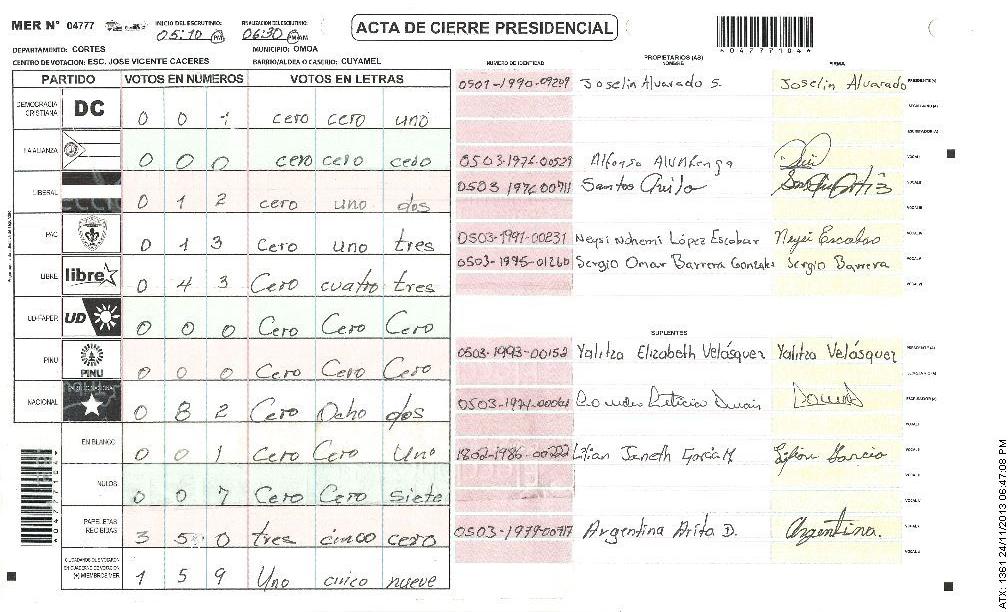 MER N° 04777 INICIO DEL ESCRUTINIO: 05:10 PM FINALIZACION DEL ESCRUTINIO: 06:30 PM AM ACTA DE CIERRE PRESIDENCIAL
*04777104*
DEPARTAMENTO: CORTES MUNICIPIO: OMOA
CENTRO DE VOTACION: ESC. JOSE VICENTE CACERES BARRIO/ALDEA O CASERIO: CUYAMEL
PARTIDO VOTOS EN NUMEROS VOTOS EN LETRAS
DEMOCRACIA CRISTIANA DC 0 0 1 cero cero uno
LA ALIANZA 0 0 0 cero cero cero
LIBERAL 0 1 2 cero uno dos
PAC 0 1 3 Cero uno tres
LIBRE libre 0 4 3 Cero cuatro tres
UD-FAPER UD 0 0 0 Cero Cero Cero
PINU PINU 0 0 0 Cero Cero Cero
NACIONAL 0 8 2 Cero Ocho dos
EN BLANCO 0 0 1 Cero Cero Uno
NULOS 0 0 7 Cero Cero siete
PAPELETAS RECIBIDAS 3 5 0 tres cinco cero
(+) MIEMBROS MER 1 5 9 Uno cinco nueve
NUMERO DE IDENTIDAD PROPIETARIOS (AS) NOMBRE FIRMA
0501-1990-09209 Joselin Alvarado S. Joselin Alvarado PRESIDENTE(A)
SECRETARIO(A)
ESCRUTADOR(A)
0503-1976-00529 Alfonso VOCAL I
0503 1976 00711 Santos VOCAL II
VOCAL III
0503-1991-00231 Neysi Nohemi López Escobar Neysi Escobar VOCAL IV
0503-1995-01260 Sergio Omar Barrera Gonzales Sergio Barrera VOCAL V
VOCAL VI
SUPLENTES
0503-1993-00152 Yalitza Elizabeth Velásquez Yalitza Velásquez PRESIDENTE(A)
SECRETARIO(A)
Leticia ESCRUTADOR(A)
VOCAL I
1802-1986-00222 Lilian Janeth Garcia M Lilian Garcia VOCAL II
VOCAL III
VOCAL IV
0503-1979-00717 Argentina Arita D. Argentina. VOCAL V
VOCAL VI
ATX: 1361 24/11/2013 06:47:08 PM